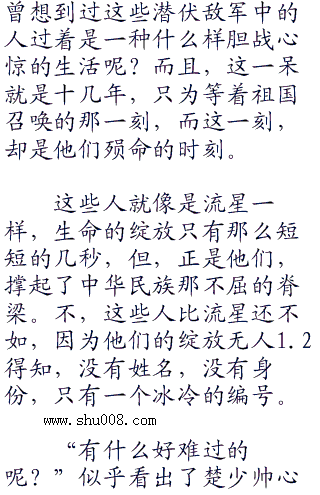 曾想到过这些潜伏敌军中的
人过着是一种什么样胆战心
惊的生活呢？而且，这一呆
就是十几年，只为等着祖国
召唤的那一刻，而这一刻，
却是他们殒命的时刻。
这些人就像是流星一
样，生命的绽放只有那么短
短的几秒，但，正是他们，
撑起了中华民族那不屈的脊
梁。不，这些人比流星还不
如，因为他们的绽放无人1.2
得知，没有姓名，没有身
份，只有一个冰冷的编号。
www.shu008.com
“有什么好难过的
呢？”似乎看出了楚少帅心